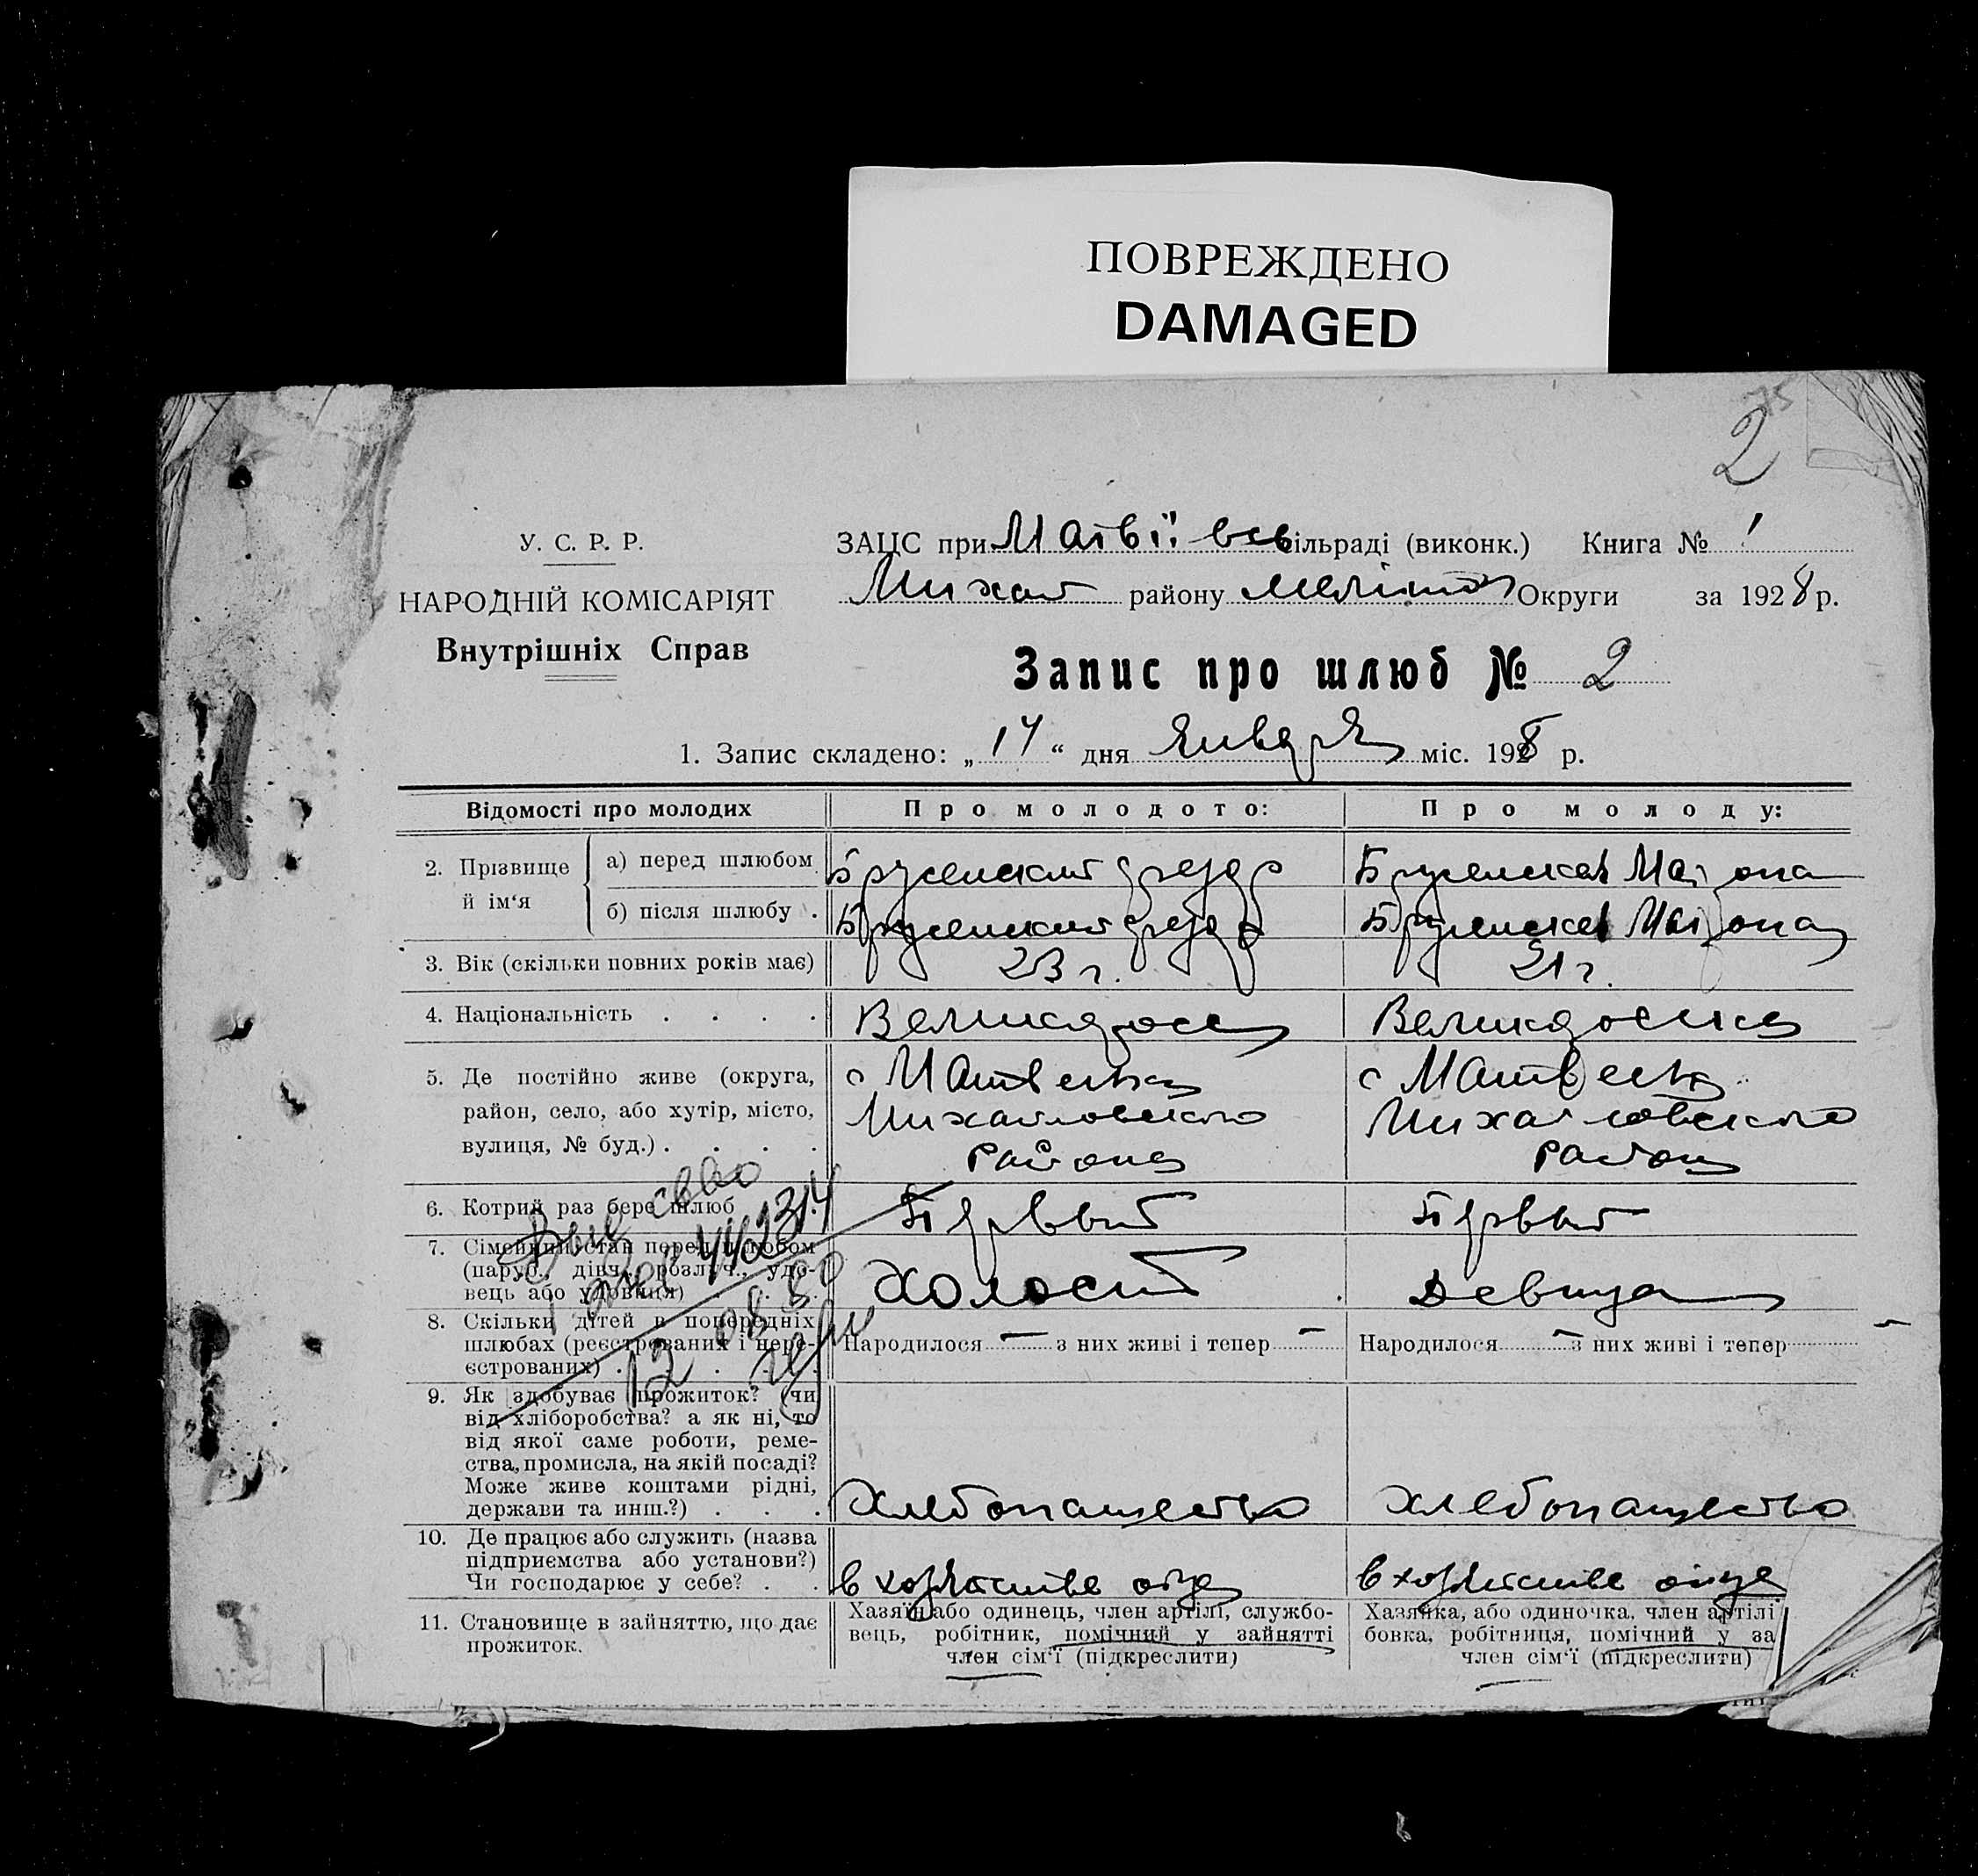 ПОВРЕЖДЕНО
DAMAGED
2
У. С. Р. Р.
НАРОДНІЙ КОМІСАРІЯТ
Внутрішніх Справ
ЗАЦС при Матвії всв ільраді (виконк.) Книга № 1
Михай району Меліт Округи за 1928 р.
Запис про шлюб № 2
1. Запис складено: „ 14 “ дня Января міс. 1928 р.
Відомості про молодих
Про молодого:
Про молоду:
2. Прізвище й ім‘я
а) перед шлюбом
б) після шлюбу .
3. Вік (скільки повних років має)
23 г.
21 г.
4. Національність . . . .
Великоросс
Великороска
5. Де постійно живе (округа,
район, село, або хутір, місто,
вулиця, № буд.) . . . .
с Матвеевка
Михайловского
района
с Матвеевка
Михайловского
района
6. Котрий раз бере шлюб
Первый
Первый
7. Сімейний стан перед шлюбом
(паруб., дівч., розлуч., удо-
вець або удовиця)
Холост
Девица
8. Скільки дітей в попередніх
шлюбах (реєстрованих і нере-
єстрованих) . . . . .
Народилося — з них живі і тепер —
Народилося — з них живі і тепер —
9. Як здобуває прожиток? (чи
від хліборобства? а як ні, то
від якої саме роботи, реме-
ства, промисла, на якій посаді?
Може живе коштами рідні,
держави та инш.?) . . .
Хлебопашество
Хлебопашество
10. Де працює або служить (назва
підприємства або установи?)
Чи господарює у себе? . .
в хозяйстве отца
в хозяйстве отца
11. Становище в зайняттю, що дає
прожиток.
Хазяїн або одинець, член артілі, службо-
вець, робітник, помічний у зайнятті
член сім‘ї (підкреслити)
Хазяйка, або одиночка, член артілі
бовка, робітниця, помічний у за
член сім‘ї (підкреслити)